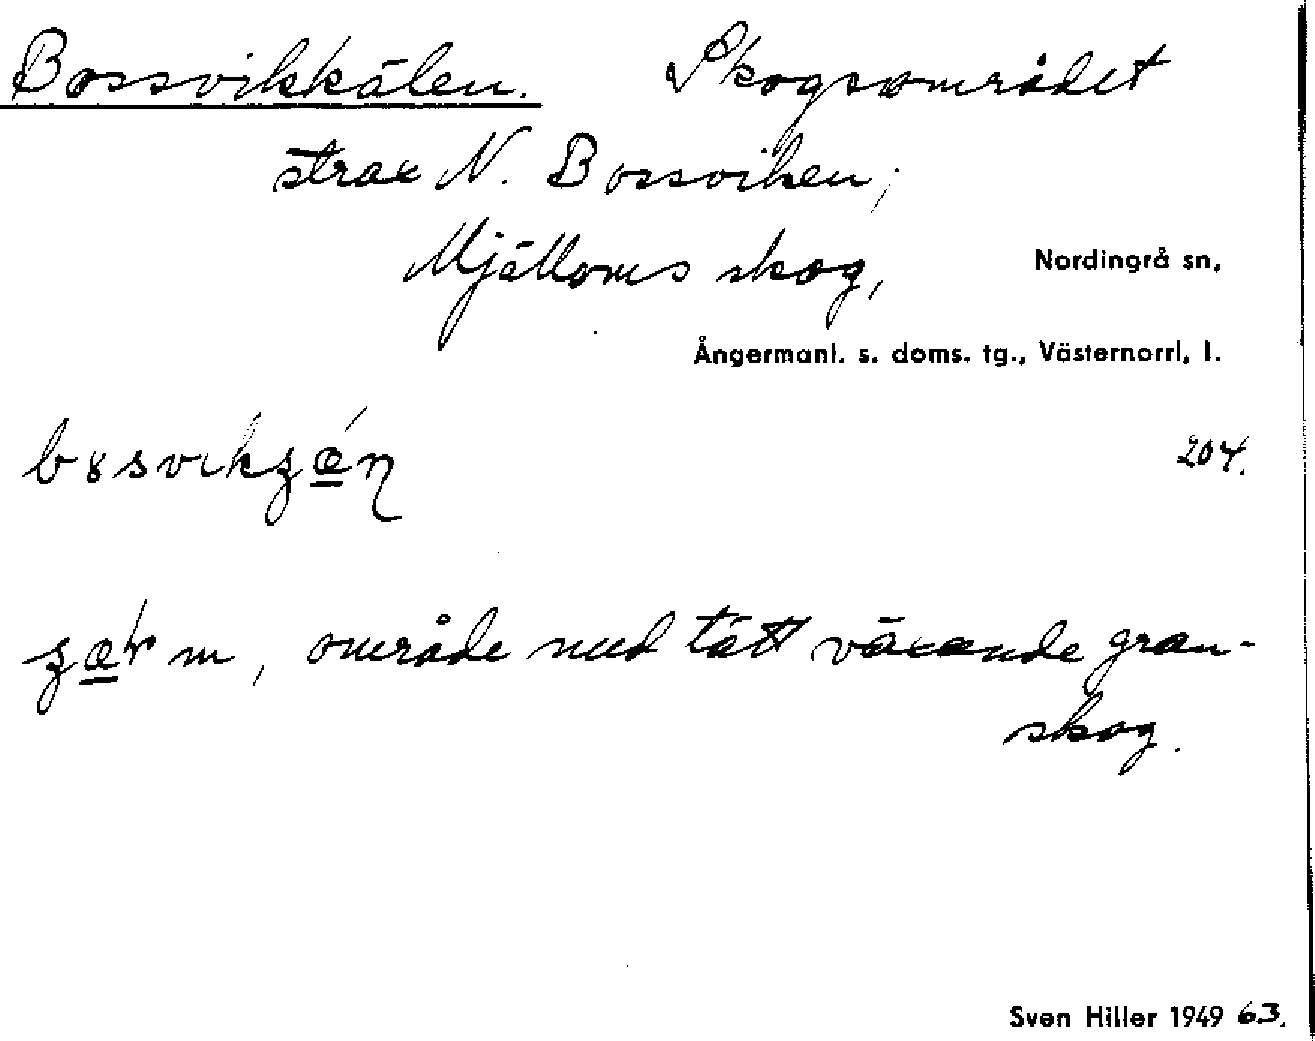 Bossvikkälen. Skogsområdet
strax N. Bossviken,
Mjälloms skog,
Nordingrå sn,
Ångermanl. s. doms. tg., Västernorrl. l.
204.
m, område med tätt växande gran-
skog.
Sven Hiller 1949 63.